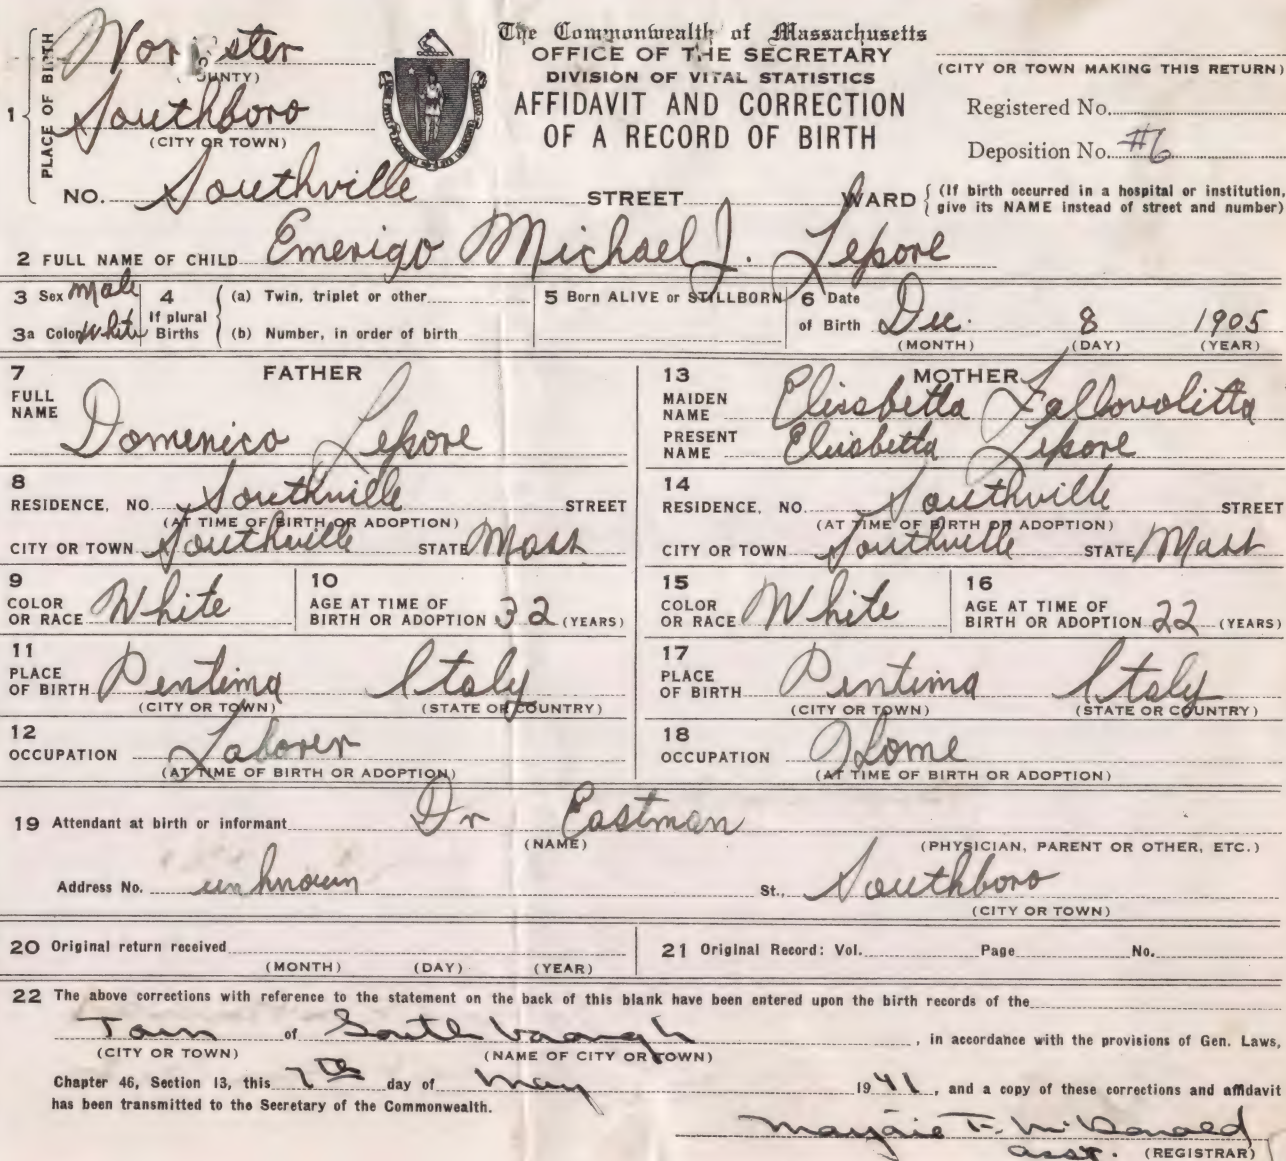 Worcester
(COUNTY)
The Commonwealth of Massachusetts
OFFICE OF THE SECRETARY
DIVISION OF VITAL STATISTICS
AFFIDAVIT AND CORRECTION
OF A RECORD OF BIRTH
(CITY OR TOWN MAKING THIS RETURN)
Registered No.
Deposition No. #6
1 PLACE OF BIRTH
Southboro
(CITY OR TOWN)
NO. Southville STREET WARD { (If birth occurred in a hospital or institution, give its NAME instead of street and number)
2 FULL NAME OF CHILD Emerigo Michael J. Lepore
3 Sex Male
3a Color White
4 If plural Births
(a) Twin, triplet or other
(b) Number, in order of birth
5 Born ALIVE or STILLBORN
6 Date of Birth Dec. 8 1905
(MONTH) (DAY) (YEAR)
FATHER
7 FULL NAME Domenico Lepore
8 RESIDENCE, NO. Southville STREET
(AT TIME OF BIRTH OR ADOPTION)
CITY OR TOWN Southville STATE Mass
9 COLOR OR RACE White
10 AGE AT TIME OF BIRTH OR ADOPTION 32 (YEARS)
11 PLACE OF BIRTH Pentima Italy
(CITY OR TOWN) (STATE OR COUNTRY)
12 OCCUPATION Laborer
(AT TIME OF BIRTH OR ADOPTION)
MOTHER
13 MAIDEN NAME Elisabetta Fallovolitta
PRESENT NAME Elisabetta Lepore
14 RESIDENCE, NO. Southville STREET
(AT TIME OF BIRTH OR ADOPTION)
CITY OR TOWN Southville STATE Mass
15 COLOR OR RACE White
16 AGE AT TIME OF BIRTH OR ADOPTION 22 (YEARS)
17 PLACE OF BIRTH Pentima Italy
(CITY OR TOWN) (STATE OR COUNTRY)
18 OCCUPATION Home
(AT TIME OF BIRTH OR ADOPTION)
19 Attendant at birth or informant Dr Eastman
(NAME) (PHYSICIAN, PARENT OR OTHER, ETC.)
Address No. unknown St., Southboro
(CITY OR TOWN)
20 Original return received
(MONTH) (DAY) (YEAR)
21 Original Record: Vol. Page No.
22 The above corrections with reference to the statement on the back of this blank have been entered upon the birth records of the
Town of Southborough, in accordance with the provisions of Gen. Laws,
(CITY OR TOWN) (NAME OF CITY OR TOWN)
Chapter 46, Section 13, this 7th day of May 1941, and a copy of these corrections and affidavit
has been transmitted to the Secretary of the Commonwealth.
Marjorie F. McDonald
asst. (REGISTRAR)